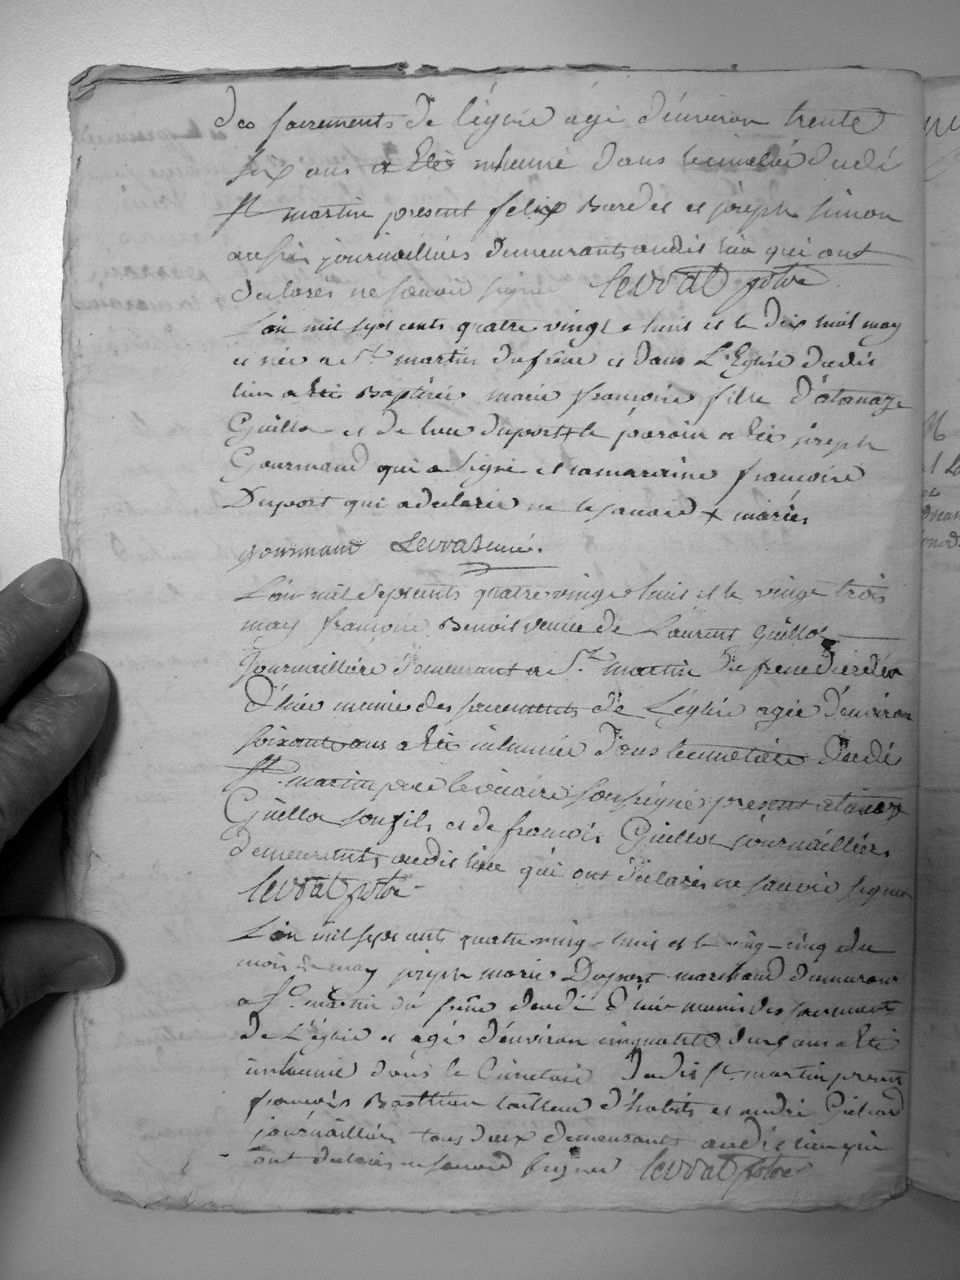 des sacrements de l'église agé d'environ trente
six ans a été inhumé dans le cimetière dudit
St martin present felix Burdet et joseph simon
aussi journailliers demeurants audit lieu qui ont
declares ne savoir signé
L'an mil sept cents quatre vingt e huit et le dix huit may
et née a St martin du frêne et dans L'Eglise dudit
lieu a été Baptisée marie françoise fille d'atanaze
Guillot et de duport le parain a été joseph
Gourmand qui a signé et la maraine françoise
Duport qui a declarée ne le savoir x mariés
gourmand
L'an mil sept cents quatre vingt e huit et le vingt trois
may françoise Benoit veuve de Laurent Guillot
journaillière demeurant a St martin de frene decedée
d'hier munie des sacrements de L'église agée d'environ
soixante ans a été inhumée dans le cimetière dudit
St martin par le vicaire soussigné present atanaze
Guillot son fils et de françois Guillot journailliers
demeurants audit lieu qui ont declarés ne savoir signer
L'an mil sept cents quatre vingt e huit et le vingt cinq du
mois de may joseph marie Duport marchand demeurant
a St martin du frêne decedé d'hier muni des sacrements
de L'église et agé d'environ cinquante deux ans a été
inhumé dans le Cimetière dudit St martin present
françois tailleur d'habits et andré
journaillier tous deux demeurants audit lieu qui
ont declarés ne savoir signer